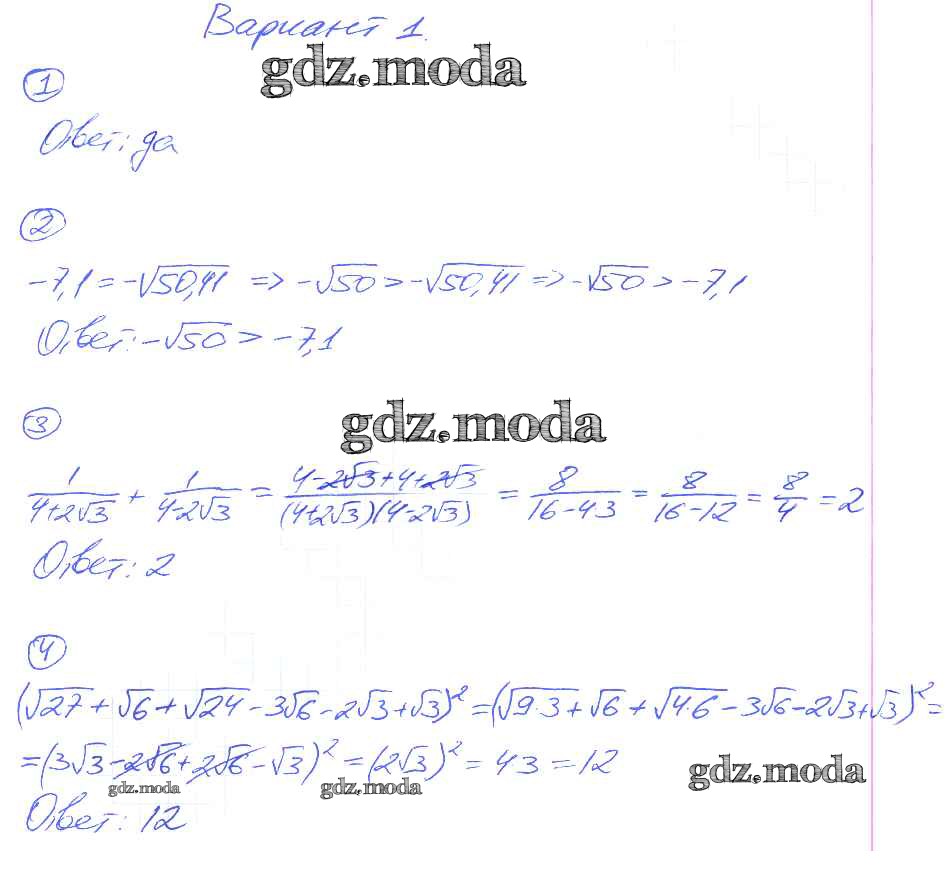 Вариант 1.
gdz.moda
1
Ответ: да
2
-7,1 = -√50,41 => -√50 > -√50,41 => -√50 > -7,1
Ответ: -√50 > -7,1
3
gdz.moda
1/(4+2√3) + 1/(4-2√3) = (4-2√3+4+2√3)/((4+2√3)(4-2√3)) = 8/(16-4·3) = 8/(16-12) = 8/4 = 2
Ответ: 2
4
(√27 + √6 + √24 - 3√6 - 2√3 + √3)² = (√9·3 + √6 + √4·6 - 3√6 - 2√3 + √3)² =
= (3√3 - 2√6 + 2√6 - √3)² = (2√3)² = 4·3 = 12
gdz.moda
gdz.moda
gdz.moda
Ответ: 12